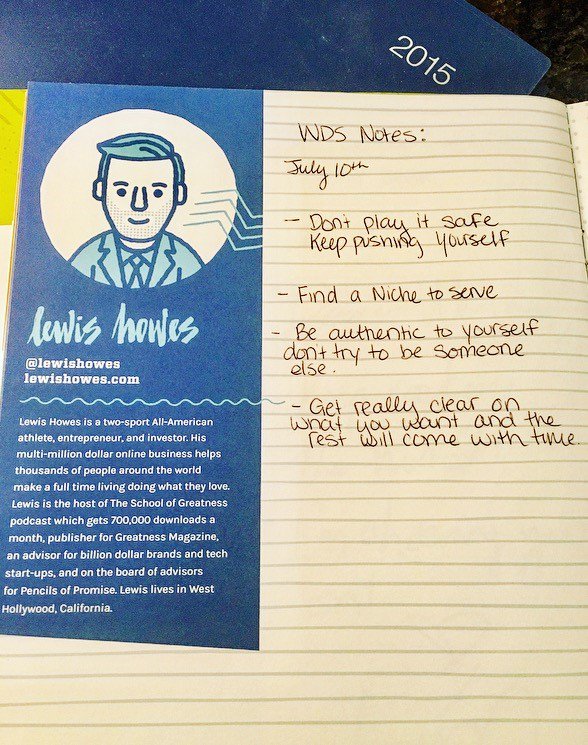 2015
lewis howes
@lewishowes
lewishowes.com
Lewis Howes is a two-sport All-American
athlete, entrepreneur, and investor. His
multi-million dollar online business helps
thousands of people around the world
make a full time living doing what they love.
Lewis is the host of The School of Greatness
podcast which gets 700,000 downloads a
month, publisher for Greatness Magazine,
an advisor for billion dollar brands and tech
start-ups, and on the board of advisors
for Pencils of Promise. Lewis lives in West
Hollywood, California.
WDS Notes:
July 10th
- Dont play it safe
Keep pushing yourself
- Find a Niche to serve
- Be authentic to yourself
dont try to be someone
else.
- Get really clear on
what you want and the
rest will come with time